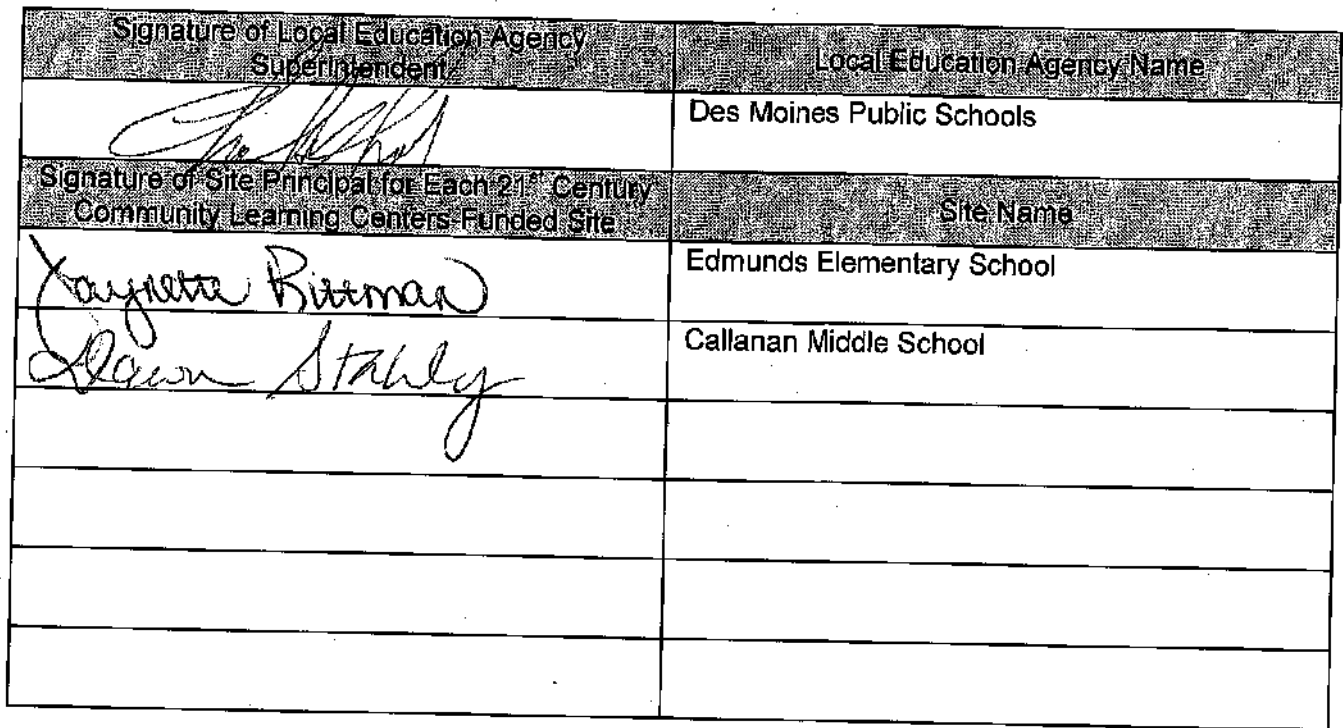 Signature of Local Education Agency
Superintendent
Local Education Agency Name
Des Moines Public Schools
Signature of Site Principal for Each 21st Century
Community Learning Centers-Funded Site
Site Name
Jaynette Rittman
Edmunds Elementary School
Dawn Stahly
Callanan Middle School